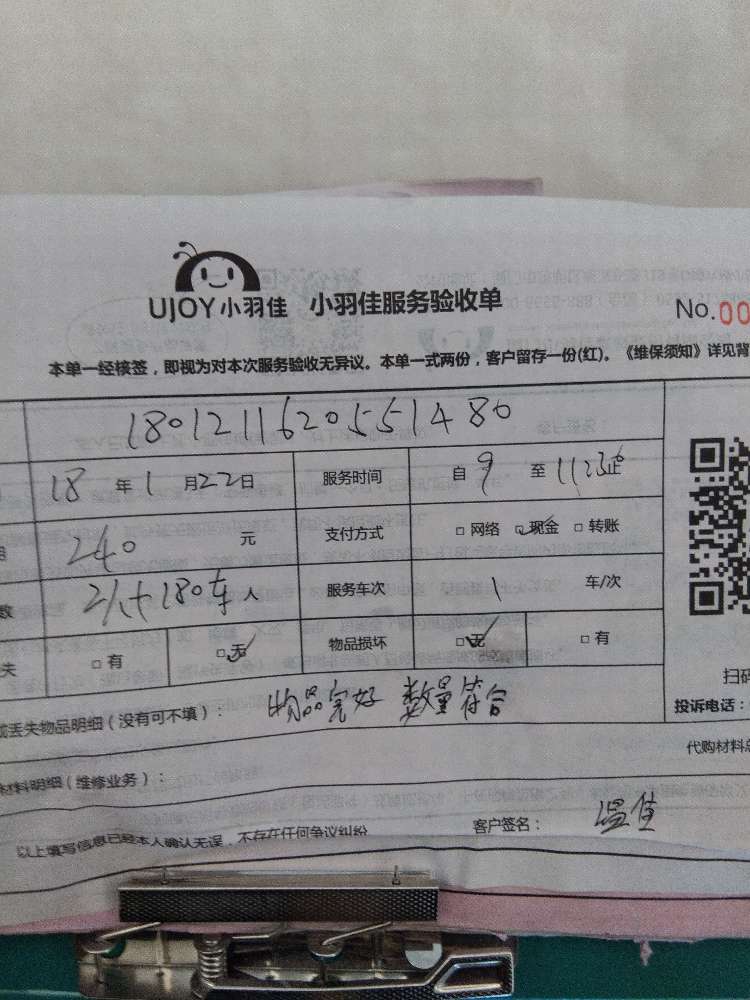 UJOY小羽佳 小羽佳服务验收单
No.00
本单一经核签，即视为对本次服务验收无异议。本单一式两份，客户留存一份(红)。《维保须知》详见背
18012116205551480
18 年 1 月 22 日 服务时间 自 9 至 11 止
240 元 支付方式 □ 网络 □ 现金 □ 转账
数 2人+180车 人 服务车次 1 车/次
失 □ 有 □ 无 物品损坏 □ 无 □ 有
扫码
或丢失物品明细（没有可不填）： 物品完好 数量符合
投诉电话：
材料明细（维修业务）：
代购材料总
以上填写信息已经本人确认无误，不存在任何争议纠纷 客户签名： 温佳